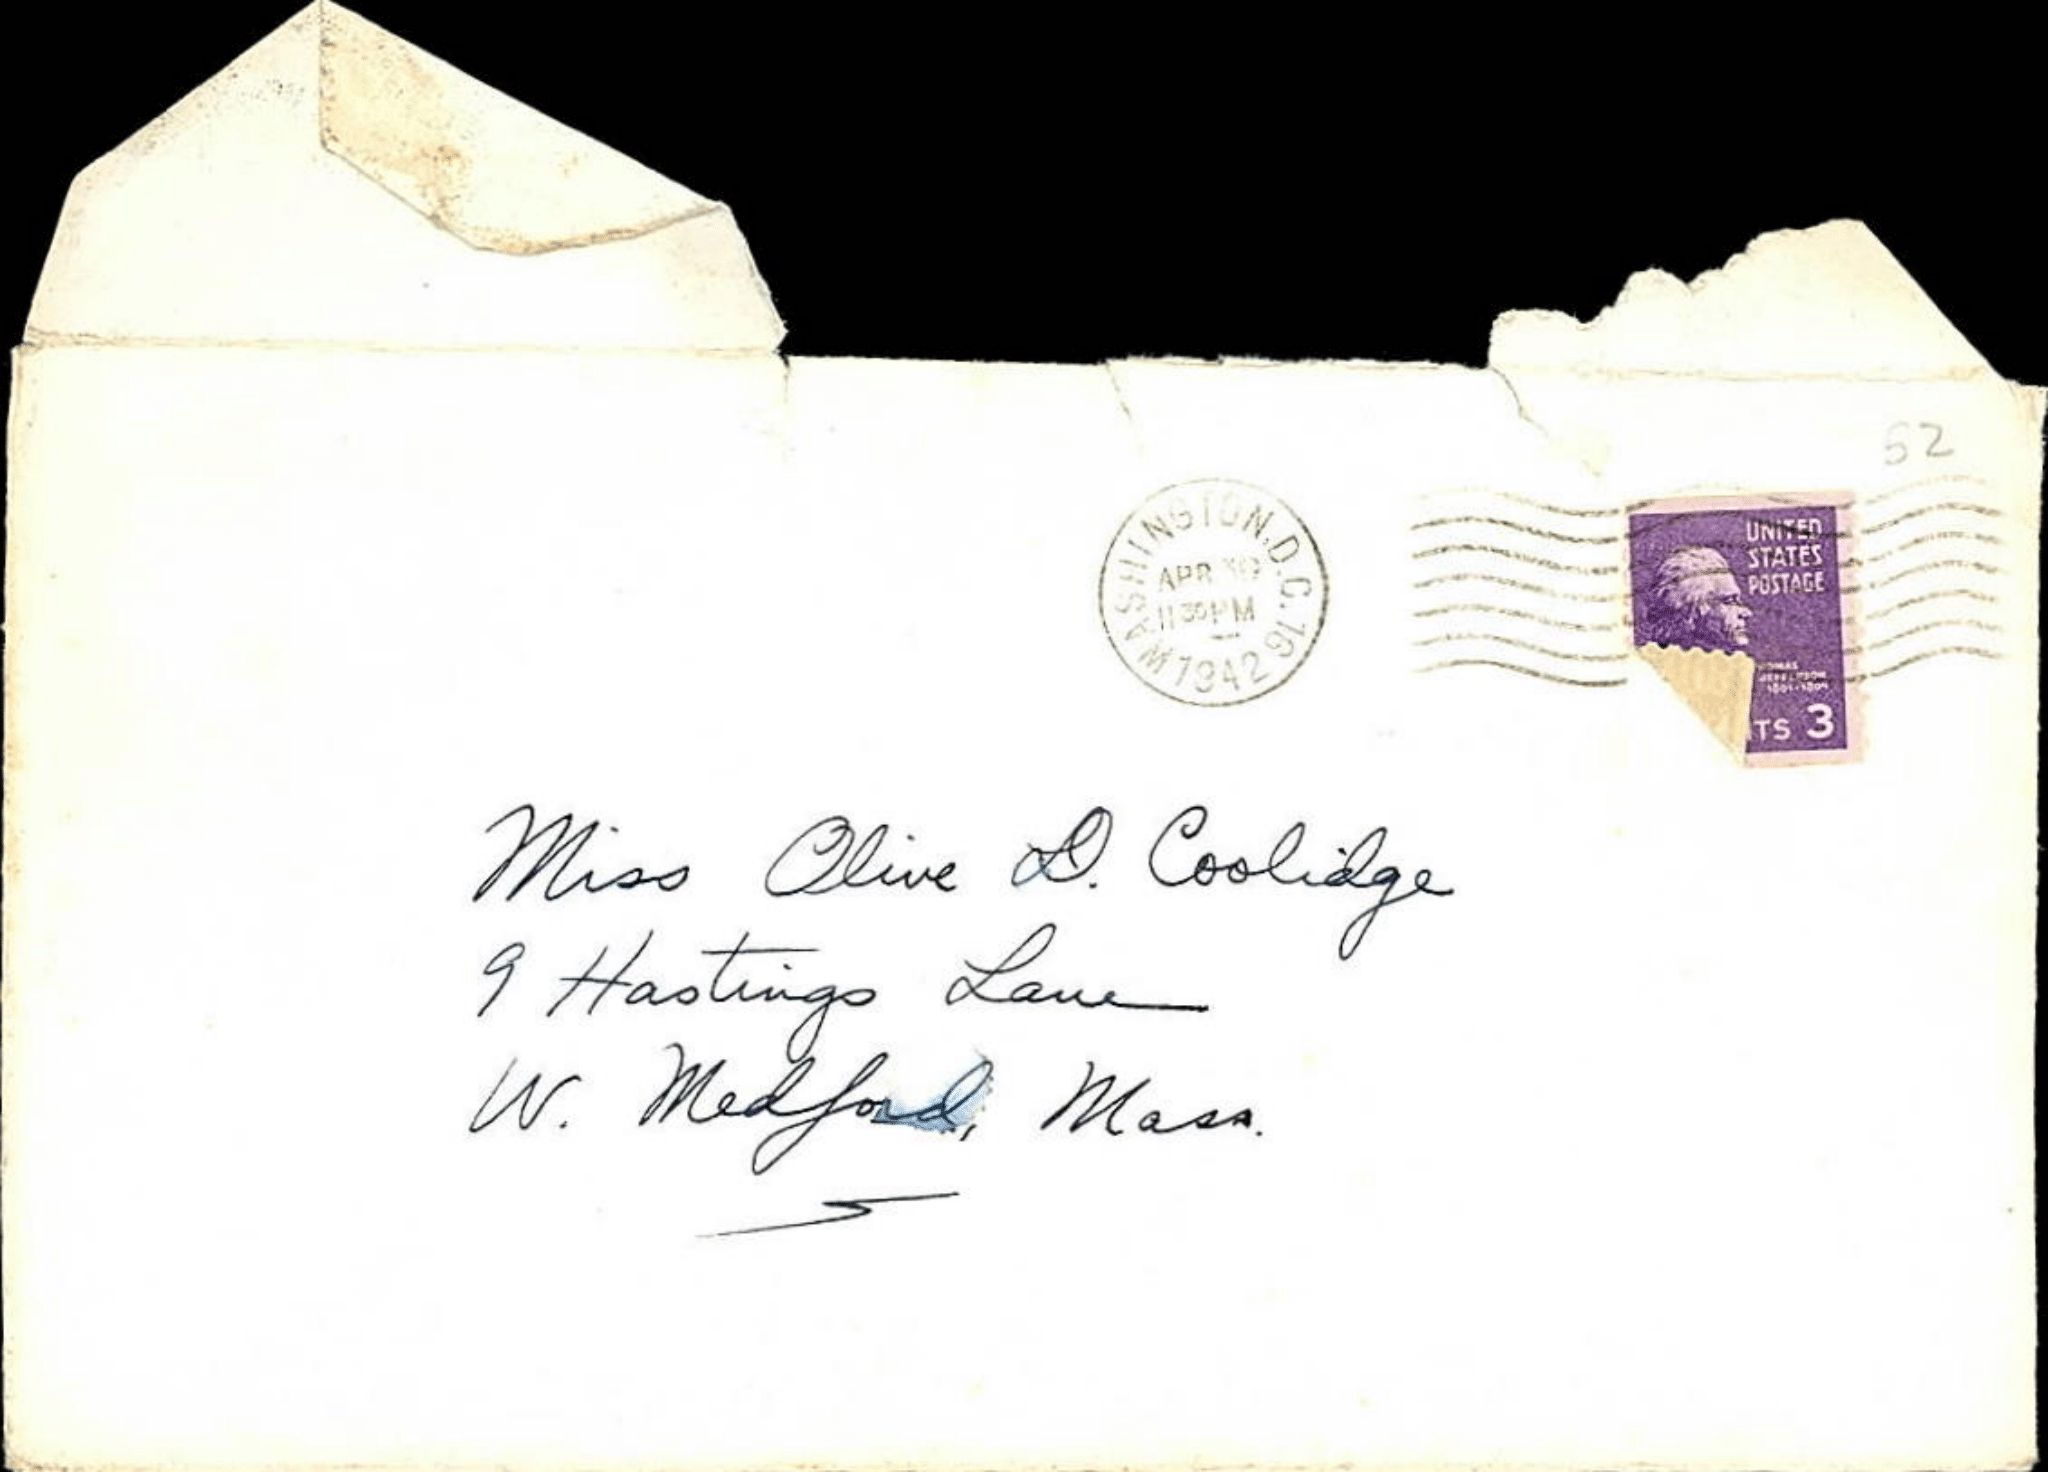 52
WASHINGTON, D.C. 16
APR 30
11 30 PM
1942
UNITED
STATES
POSTAGE
1801-1809
TS 3
Miss Olive D. Coolidge
9 Hastings Lane
W. Medford, Mass.